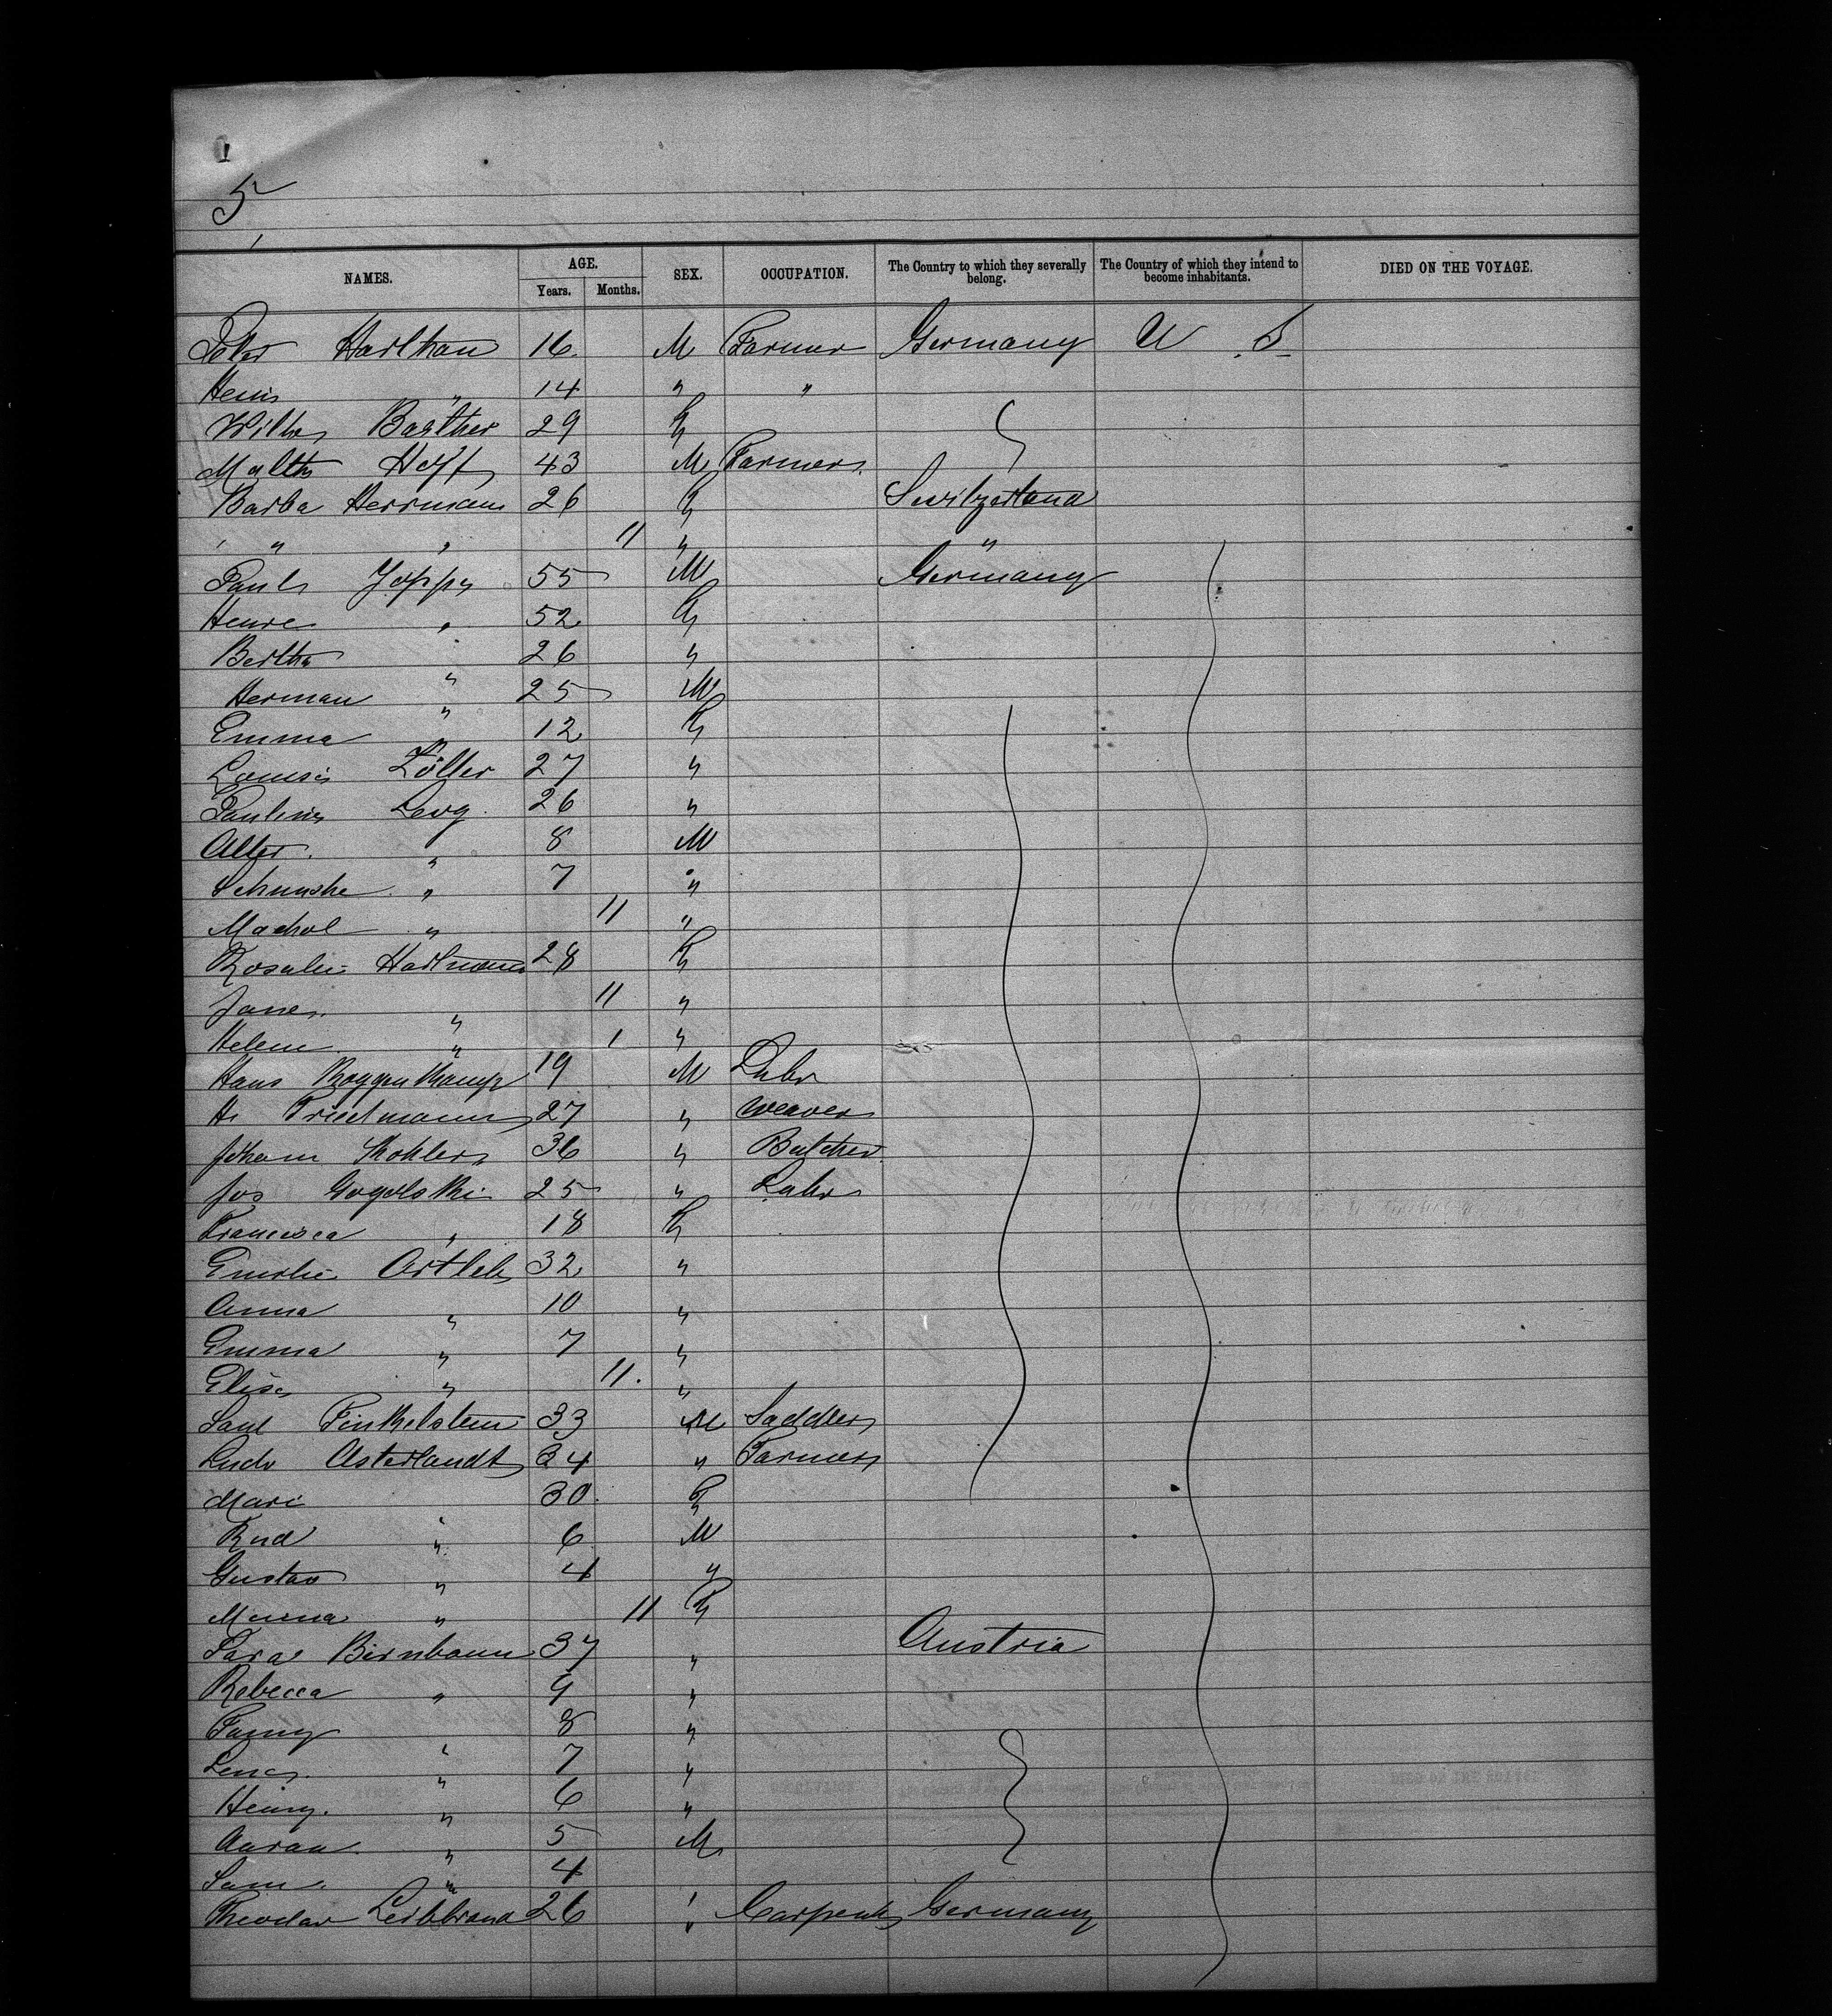 5
NAMES. AGE. SEX. OCCUPATION. The Country to which they severally belong. The Country of which they intend to become inhabitants. DIED ON THE VOYAGE.
Years. Months.
16 M Farmer Germany U S
" 14 " "
Barther 29 F
43 M Farmer
Barba Herrmann 26 F Switzerland
" " 11 " "
Paul Joppe 55 M Germany
" 52 F
Bertha " 26 "
Herman " 25 M
Emma " 12 F
Louise Zöller 27 "
Pauline 26 "
Alter " 8 M
" 7 "
" 11 "
Rosalie Hartmann 28 F
" 11 "
Helene " 1 "
Hans Roggenkamp 19 M Labr
H. Friedmann 27 " Weaver
Johann Kohler 36 " Butcher
Jos 25 " Labr
Francisca " 18 F
Emilie 32 "
Anna " 10 "
Emma " 7 "
Elise " 11 "
Saul Finkelstein 33 M Saddler
Ludv Asterlandt 34 " Farmer
Mari " 30 F
Rud " 6 M
Gustav " 4 "
" 11 F
Sara Birnbaum 37 " Austria
Rebecca " 9 "
Fanny " 8 "
Lena " 7 "
Henny " 6 "
Aaran " 5 M
Sam " 4
Theodor Leibbrand 26 " Carpentr Germany